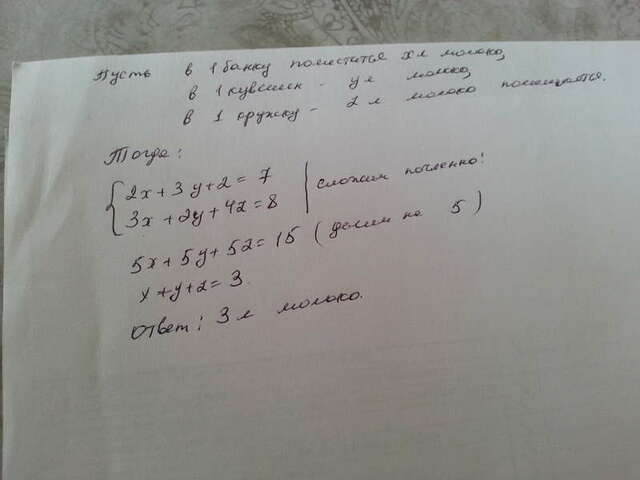 Пусть в 1 банку поместится x л молока,
в 1 кувшин - y л молока,
в 1 кружку - z л молока помещается.
Тогда:
{2x + 3y + z = 7 | сложим почленно:
3x + 2y + 4z = 8
5x + 5y + 5z = 15 (делим на 5)
x + y + z = 3.
Ответ: 3 л молока.